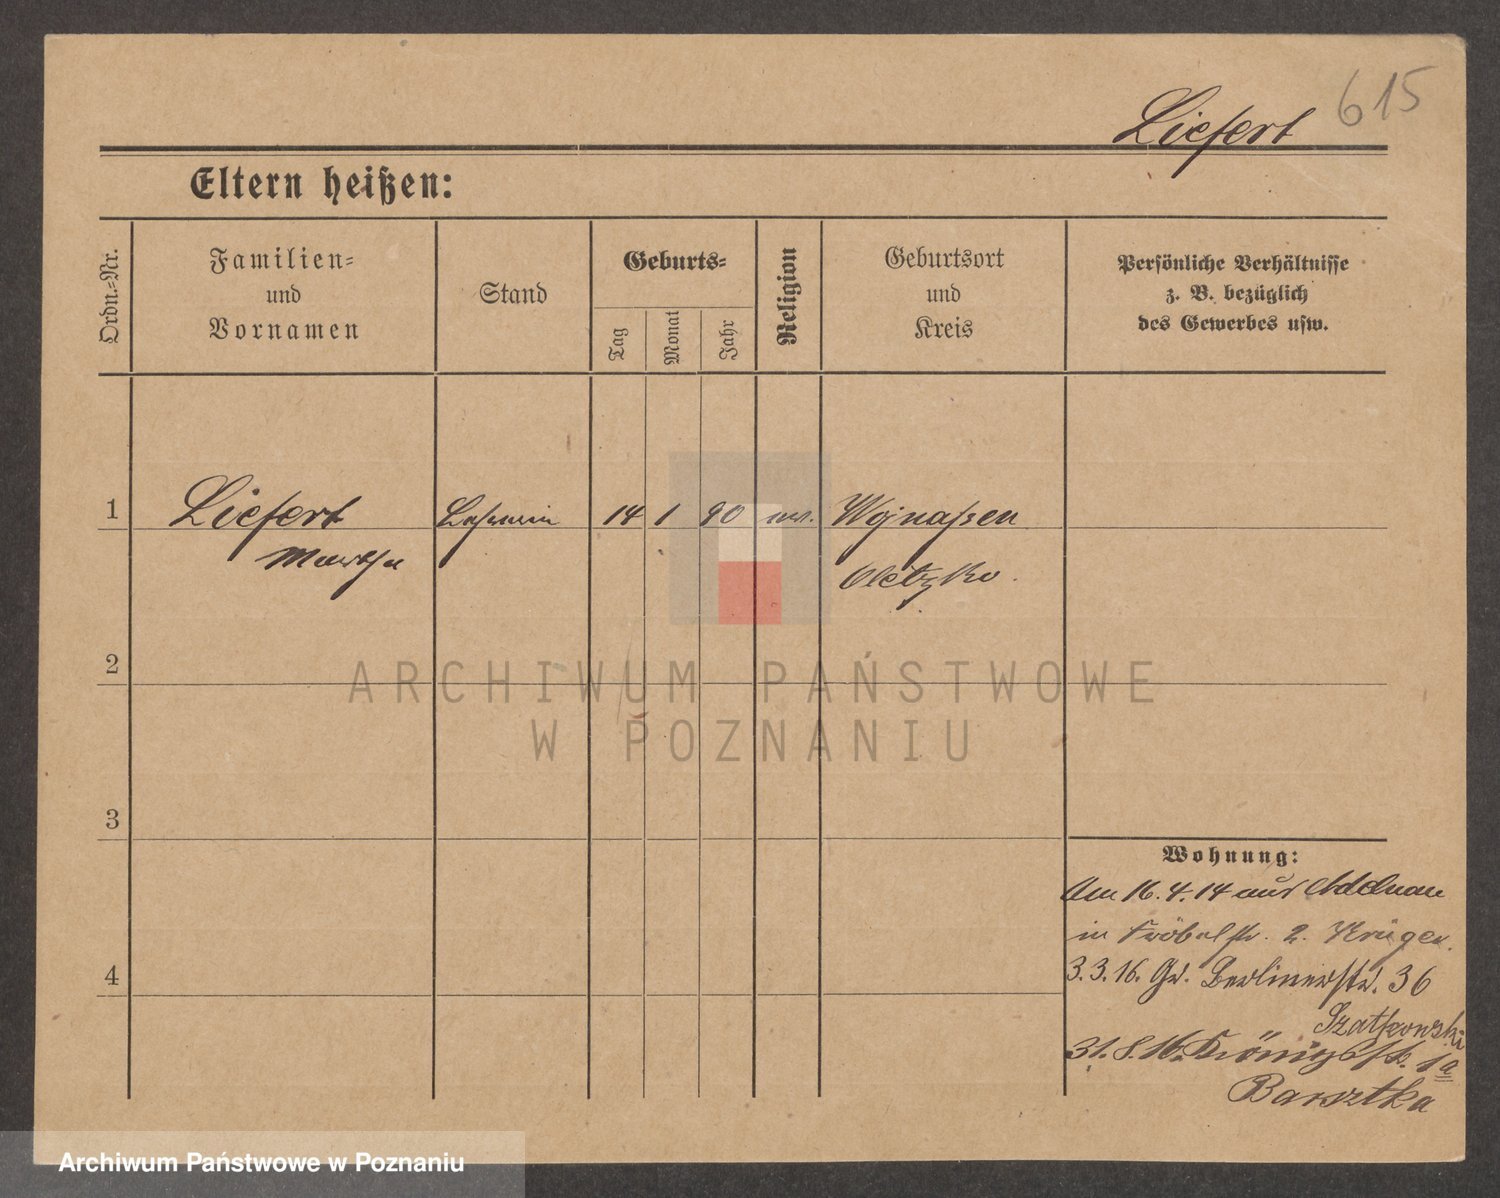 615
Liefert
Eltern heißen:
Ordn.-Nr.
Familien-
und
Vornamen
Stand
Geburts-
Tag
Monat
Jahr
Religion
Geburtsort
und
Kreis
Persönliche Verhältnisse
z. B. bezüglich
des Gewerbes usw.
1
Liefert
Martha
14 1 90
Wojnassen
Oletzko.
2
3
4
Wohnung:
Am 16.4.14 aus Adelnau
in Fröbelstr. 2. Krüger.
3.3.16. Gr. Berlinerstr. 36
Szatkowski
31.8.16. Königstr. 1a
Barsztka
ARCHIWUM PAŃSTWOWE
W POZNANIU
Archiwum Państwowe w Poznaniu